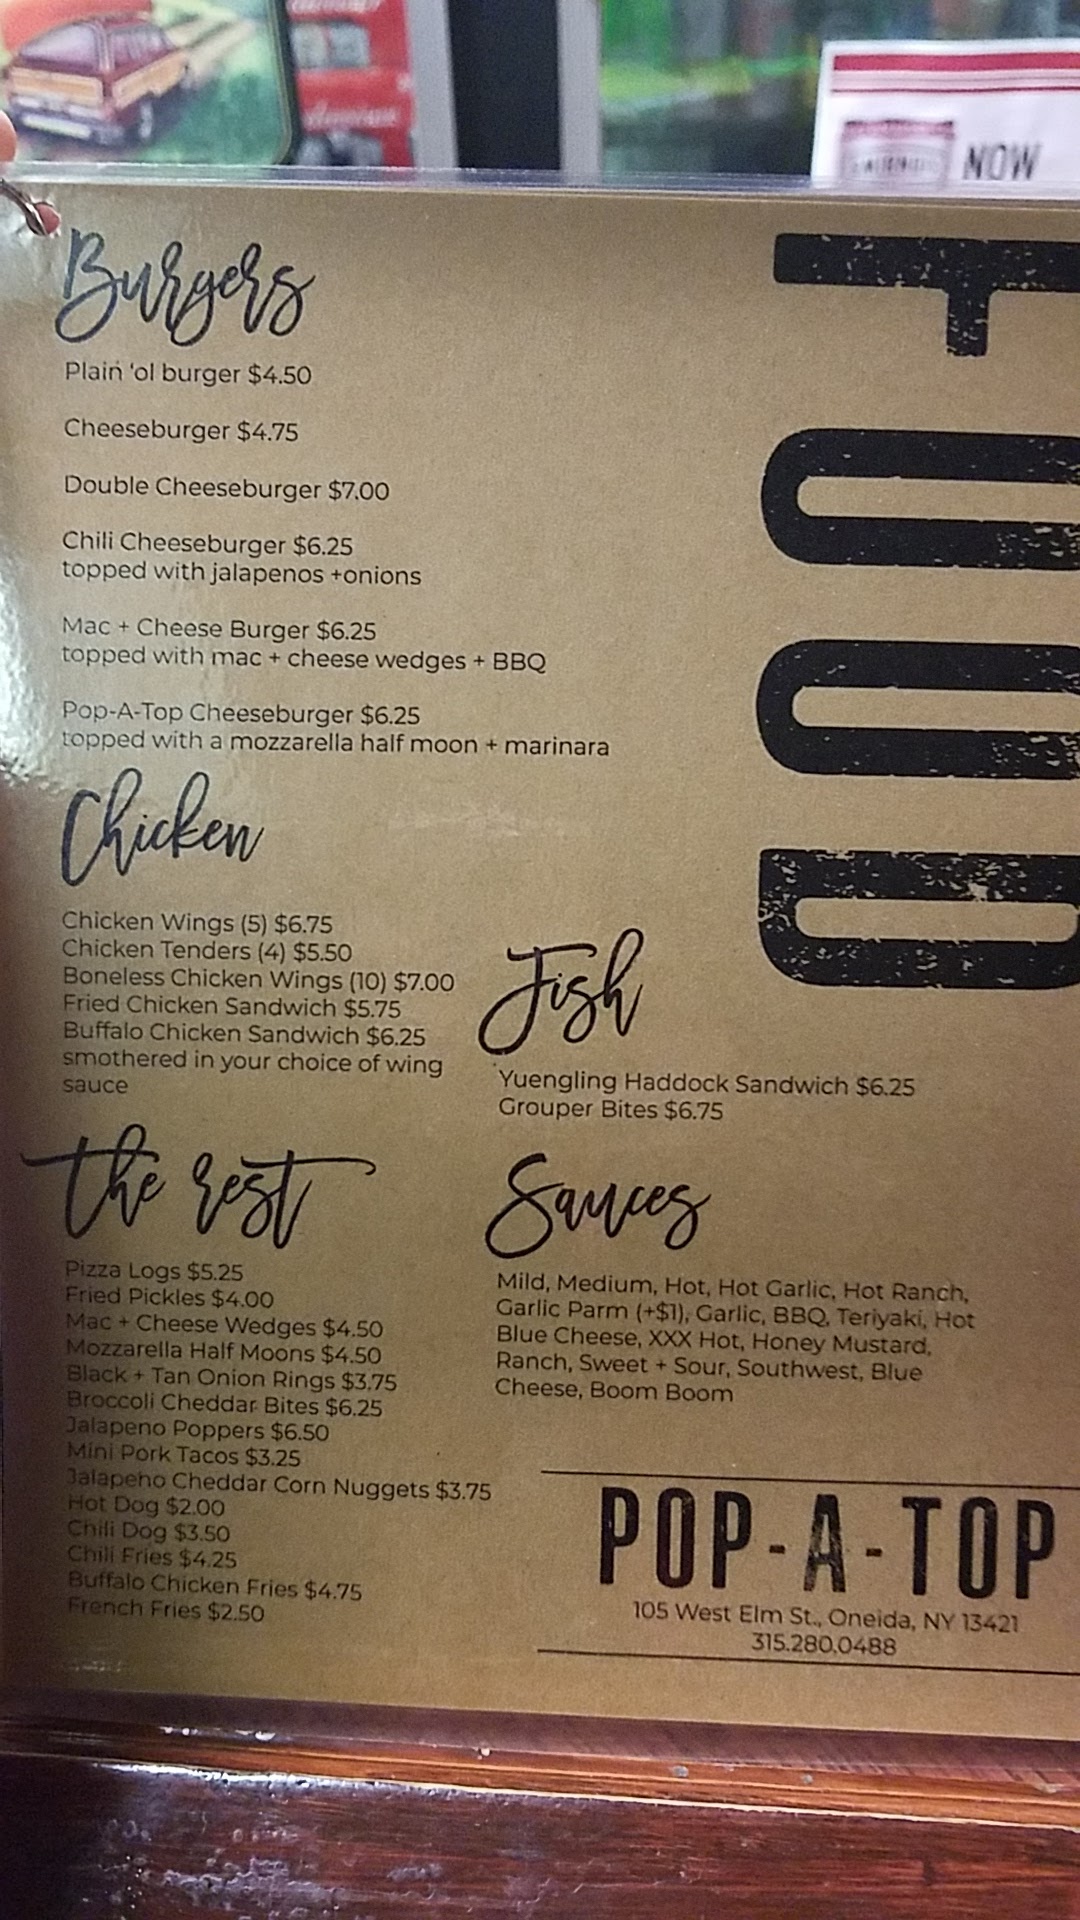 NOW
Burgers
Plain 'ol burger $4.50
Cheeseburger $4.75
Double Cheeseburger $7.00
Chili Cheeseburger $6.25
topped with jalapenos +onions
Mac + Cheese Burger $6.25
topped with mac + cheese wedges + BBQ
Pop-A-Top Cheeseburger $6.25
topped with a mozzarella half moon + marinara
FOOD
Chicken
Chicken Wings (5) $6.75
Chicken Tenders (4) $5.50
Boneless Chicken Wings (10) $7.00
Fried Chicken Sandwich $5.75
Buffalo Chicken Sandwich $6.25
smothered in your choice of wing
sauce
Fish
Yuengling Haddock Sandwich $6.25
Grouper Bites $6.75
the rest
Pizza Logs $5.25
Fried Pickles $4.00
Mac + Cheese Wedges $4.50
Mozzarella Half Moons $4.50
Black + Tan Onion Rings $3.75
Broccoli Cheddar Bites $6.25
Jalapeno Poppers $6.50
Mini Pork Tacos $3.25
Jalapeno Cheddar Corn Nuggets $3.75
Hot Dog $2.00
Chili Dog $3.50
Chili Fries $4.25
Buffalo Chicken Fries $4.75
French Fries $2.50
Sauces
Mild, Medium, Hot, Hot Garlic, Hot Ranch,
Garlic Parm (+$1), Garlic, BBQ, Teriyaki, Hot
Blue Cheese, XXX Hot, Honey Mustard,
Ranch, Sweet + Sour, Southwest, Blue
Cheese, Boom Boom
POP-A-TOP
105 West Elm St., Oneida, NY 13421
315.280.0488